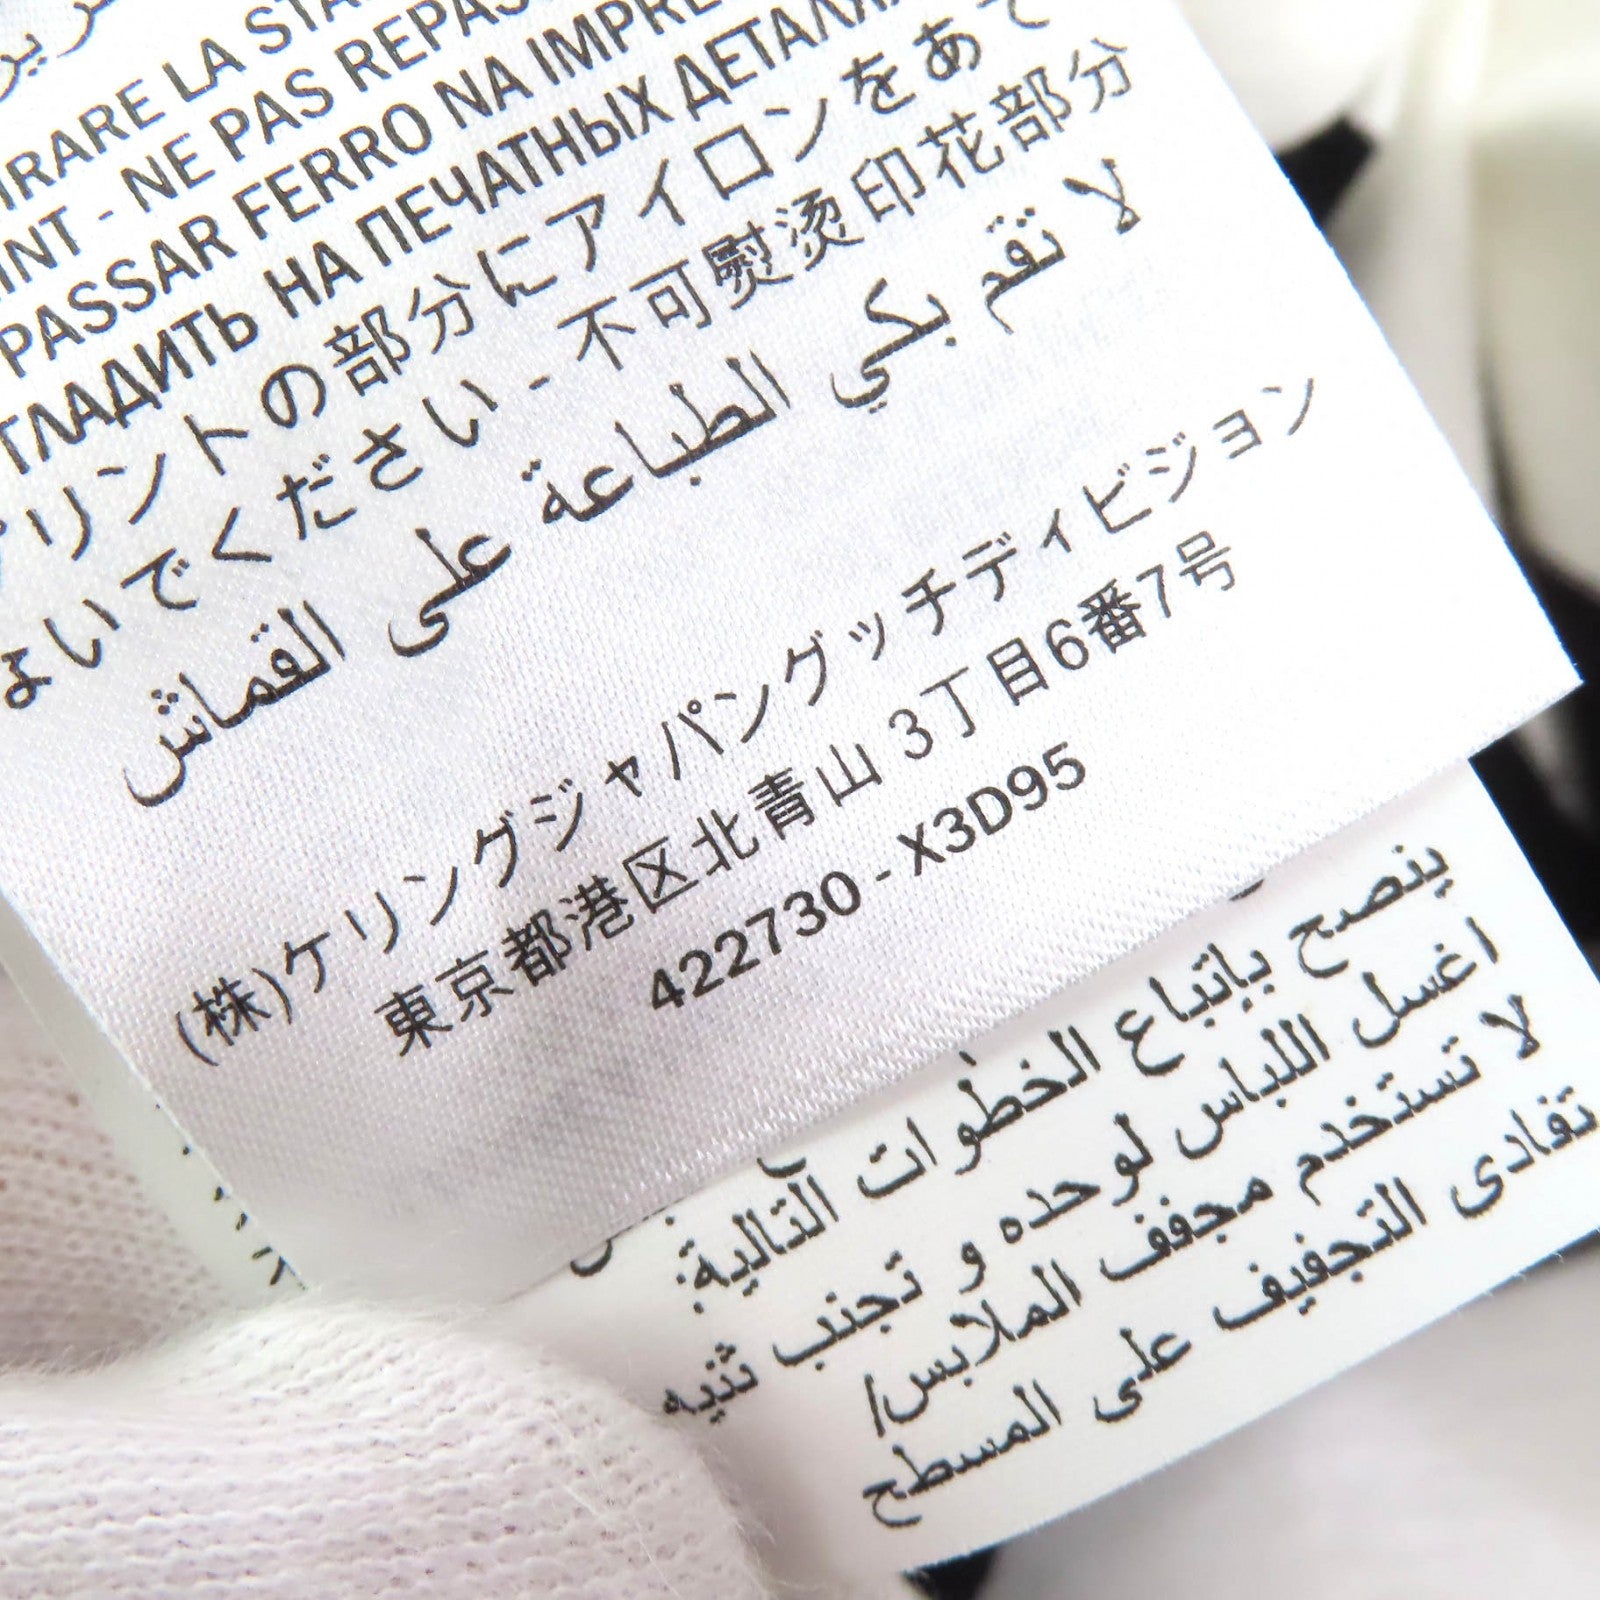 LA
- NE PAS
PASSAR FERRO NA
ГЛАДИТЬ НА ПЕЧАТНЫХ
リントの部分にアイロンをあて
よいでください - 不可熨烫印花部分
لا تقم بكي الطباعة على القماش
(株)ケリングジャパングッチディビジョン
東京都港区北青山 3丁目6番7号
422730 - X3D95
ينصح بإتباع الخطوات التالية:
اغسل اللباس لوحده و تجنب ثنيه
لا تستخدم مجفف الملابس/
تفادى التجفيف على المسطح